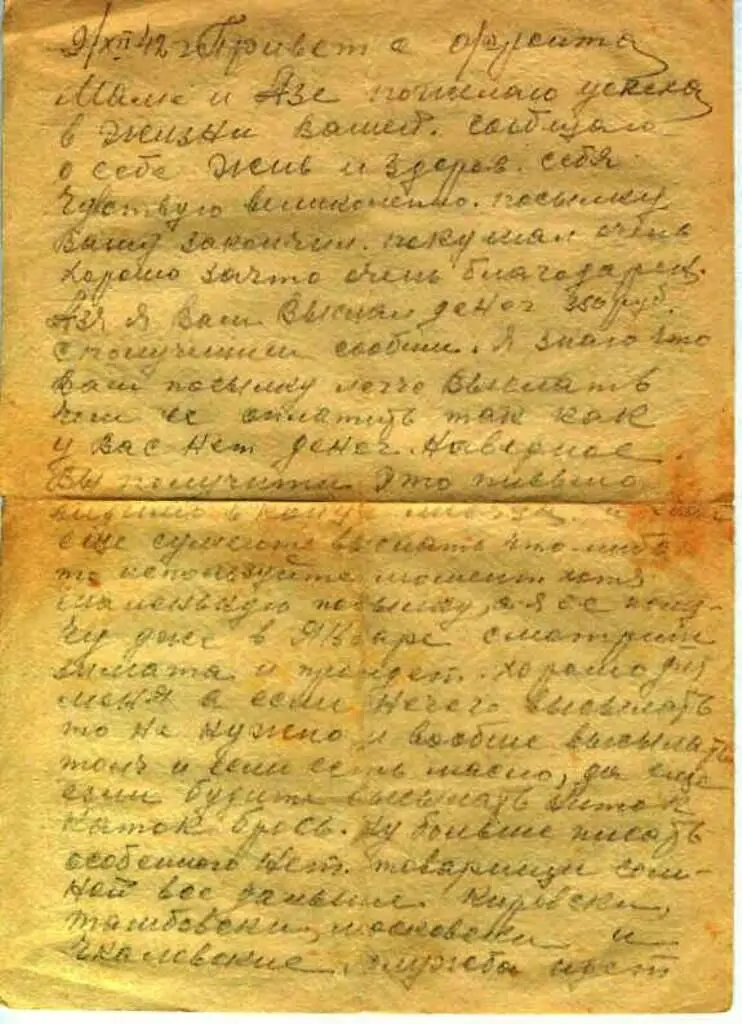 9/XII 42 г Привет с фронта
Маме и Азе пожелаю успеха
в жизни вашей. сообщаю
о себе жив и здоров. себя
чувствую великолепно. посылку
вашу закончил. покушал очень
хорошо зачто очень благодарен.
Азя я Вам выслал денег 350 руб.
о получении сообщи. Я знаю что
вам посылку легче выслать
чем ее оплатить так как
у Вас нет денег. Наверное
Вы получите это письмо
в конце месяца. и
еще сумеете выслать что либо
то используйте момент хотя
маленькую посылку, а я ее полу-
чу уже в Январе смотриш
зимата и пройдет. хорошо для
меня а если нечего высылать
то не нужно и вообще высылать
только если есть масло, да еще
если будите высылать
каток брось. Ну больше писать
особенного нет. товарищи сом-
ной все Кировски,
тамбовски, московски и
Чкаловские, служба идет